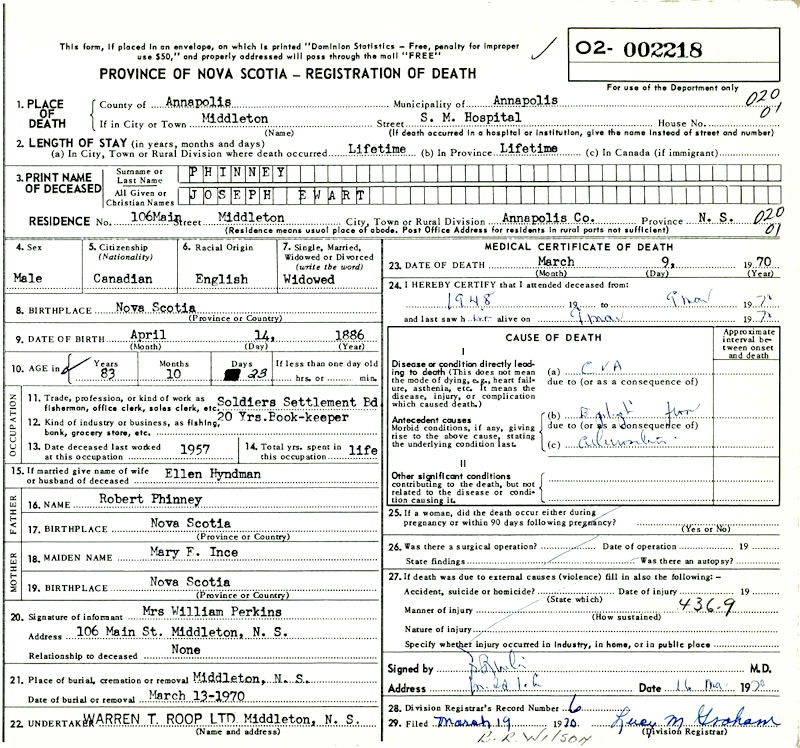 This form, if placed in an envelope, on which is printed "Dominion Statistics - Free, penalty for improper
use $50," and properly addressed will pass through the mail "FREE"
02- 002218
PROVINCE OF NOVA SCOTIA - REGISTRATION OF DEATH
For use of the Department only
1. PLACE OF DEATH
County of Annapolis Municipality of Annapolis 020
If in City or Town Middleton Street S. M. Hospital House No. 01
(Name) (If death occurred in a hospital or institution, give the name instead of street and number)
2. LENGTH OF STAY (in years, months and days)
(a) In City, Town or Rural Division where death occurred Lifetime (b) In Province Lifetime (c) In Canada (if immigrant)
3. PRINT NAME OF DECEASED
Surname or Last Name PHINNEY
All Given or Christian Names JOSEPH EWART
RESIDENCE No. 106Main Street Middleton City, Town or Rural Division Annapolis Co. Province N. S. 020
(Residence means usual place of abode. Post Office Address for residents in rural parts not sufficient) 01
4. Sex
Male
5. Citizenship (Nationality)
Canadian
6. Racial Origin
English
7. Single, Married, Widowed or Divorced (write the word)
Widowed
8. BIRTHPLACE Nova Scotia
(Province or Country)
9. DATE OF BIRTH April 14, 1886
(Month) (Day) (Year)
10. AGE in Years Months Days If less than one day old
83 10 23 hrs. or min.
OCCUPATION
11. Trade, profession, or kind of work as
fishermon, office clerk, sales clerk, etc. Soldiers Settlement Bd
12. Kind of industry or business, as fishing, 20 Yrs.Book-keeper
bank, grocery store, etc.
13. Date deceased last worked at this occupation 1957
14. Total yrs. spent in this occupation life
15. If married give name of wife or husband of deceased Ellen Hyndman
FATHER
16. NAME Robert Phinney
17. BIRTHPLACE Nova Scotia
(Province or Country)
MOTHER
18. MAIDEN NAME Mary F. Ince
19. BIRTHPLACE Nova Scotia
(Province or Country)
20. Signature of informant Mrs William Perkins
Address 106 Main St. Middleton, N. S.
Relationship to deceased None
21. Place of burial, cremation or removal Middleton, N. S.
Date of burial or removal March 13-1970
22. UNDERTAKER WARREN T. ROOP LTD Middleton, N. S.
(Name and address)
MEDICAL CERTIFICATE OF DEATH
23. DATE OF DEATH March 9, 1970
(Month) (Day) (Year)
24. I HEREBY CERTIFY that I attended deceased from:
1948 19 to 9 Mar 1970
and last saw h alive on 9 Mar 1970
CAUSE OF DEATH
Approximate interval between onset and death
I
Disease or condition directly leading to death (This does not mean
the mode of dying, e.g., heart failure, asthenia, etc. It means the
disease, injury, or complication
which caused death.)
(a) CVA
due to (or as a consequence of)
Antecedent causes
Morbid conditions, if any, giving
rise to the above cause, stating
the underlying condition last.
(b)
due to (or as a consequence of)
(c)
II
Other significant conditions
contributing to the death, but not
related to the disease or condition causing it.
25. If a woman, did the death occur either during
pregnancy or within 90 days following pregnancy?
(Yes or No)
26. Was there a surgical operation? Date of operation 19
State findings Was there an autopsy?
27. If death was due to external causes (violence) fill in also the following: -
Accident, suicide or homicide? Date of injury 19
(State which)
Manner of injury 436.9
(How sustained)
Nature of injury
Specify whether injury occurred in industry, in home, or in public place
Signed by M.D.
Address Date 16 Mar 1970
28. Division Registrar's Record Number 6
29. Filed March 19 1970 Lucy M Graham
(Division Registrar)
B. R. Wilson